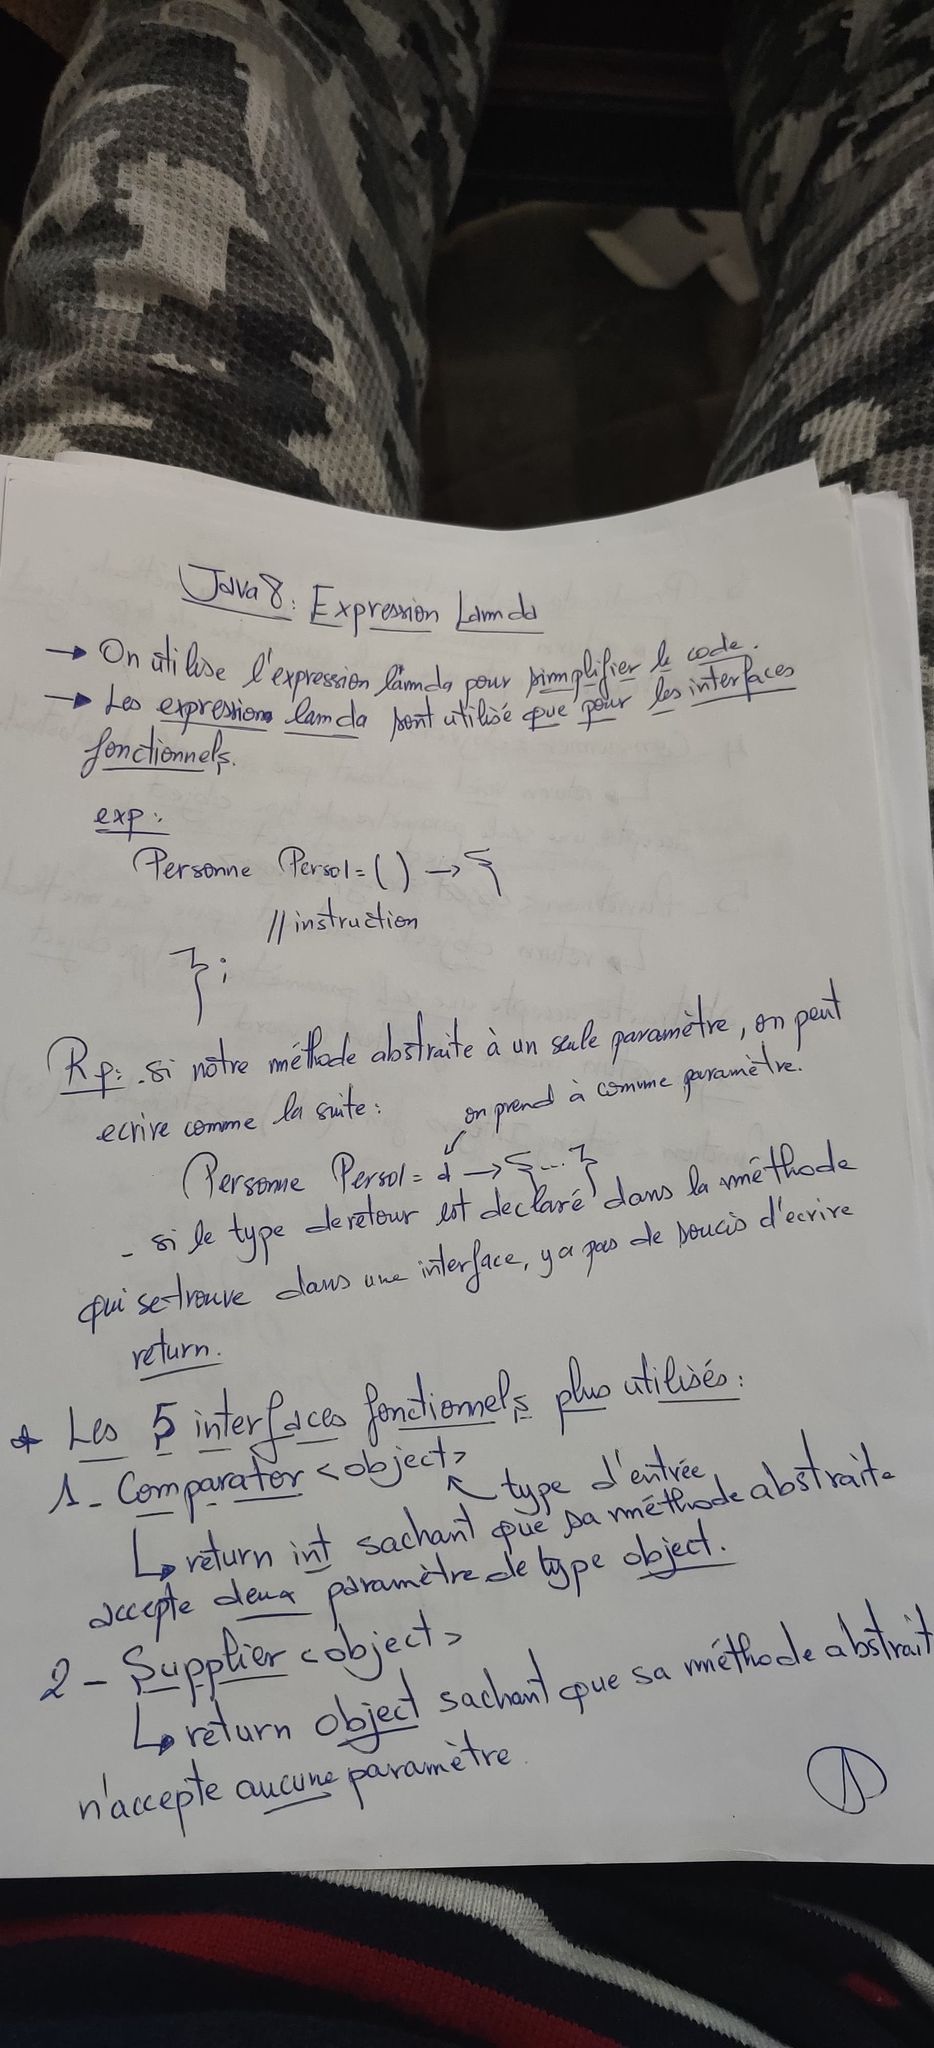 Java 8: Expression Lamda
→ On utilise l'expression lamda pour simplifier le code.
→ Les expressions lamda sont utilisé que pour les interfaces
fonctionnels.
exp:
Personne Perso1 = ( ) → {
// instruction
};
Rq: - si notre méthode abstraite à un seule paramètre, on peut
ecrire comme la suite:
on prend à comme paramètre.
Personne Perso1 = a → {...}
- si le type de retour est declaré dans la méthode
qui se trouve dans une interface, y a pas de soucis d'ecrire
return.
* Les 5 interfaces fonctionnels plus utilisés:
1 - Comparator <object>
type d'entrée
↳ return int sachant que sa méthode abstraite
accepte deux paramètre de type object.
2 - Supplier <object>
↳ return object sachant que sa méthode abstrait
n'accepte aucune paramètre.
1